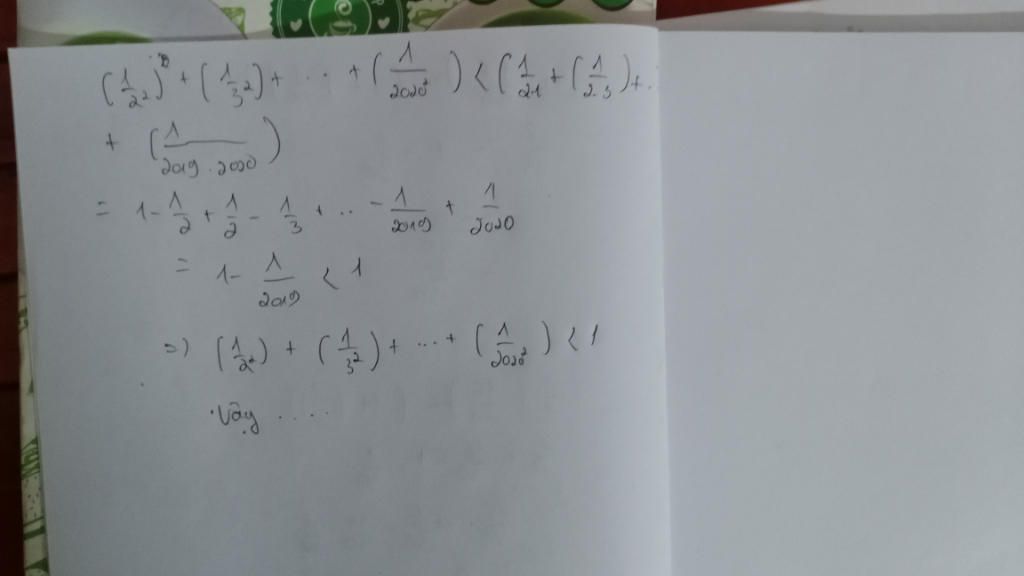 (1/2²) + (1/3²) + ... + (1/2020²) < (1/2.1 + (1/2.3) + ..
+ (1/2019.2020)
= 1 - 1/2 + 1/2 - 1/3 + .. - 1/2019 + 1/2020
= 1 - 1/2019 < 1
=> (1/2²) + (1/3²) + ... + (1/2020²) < 1
Vậy ....